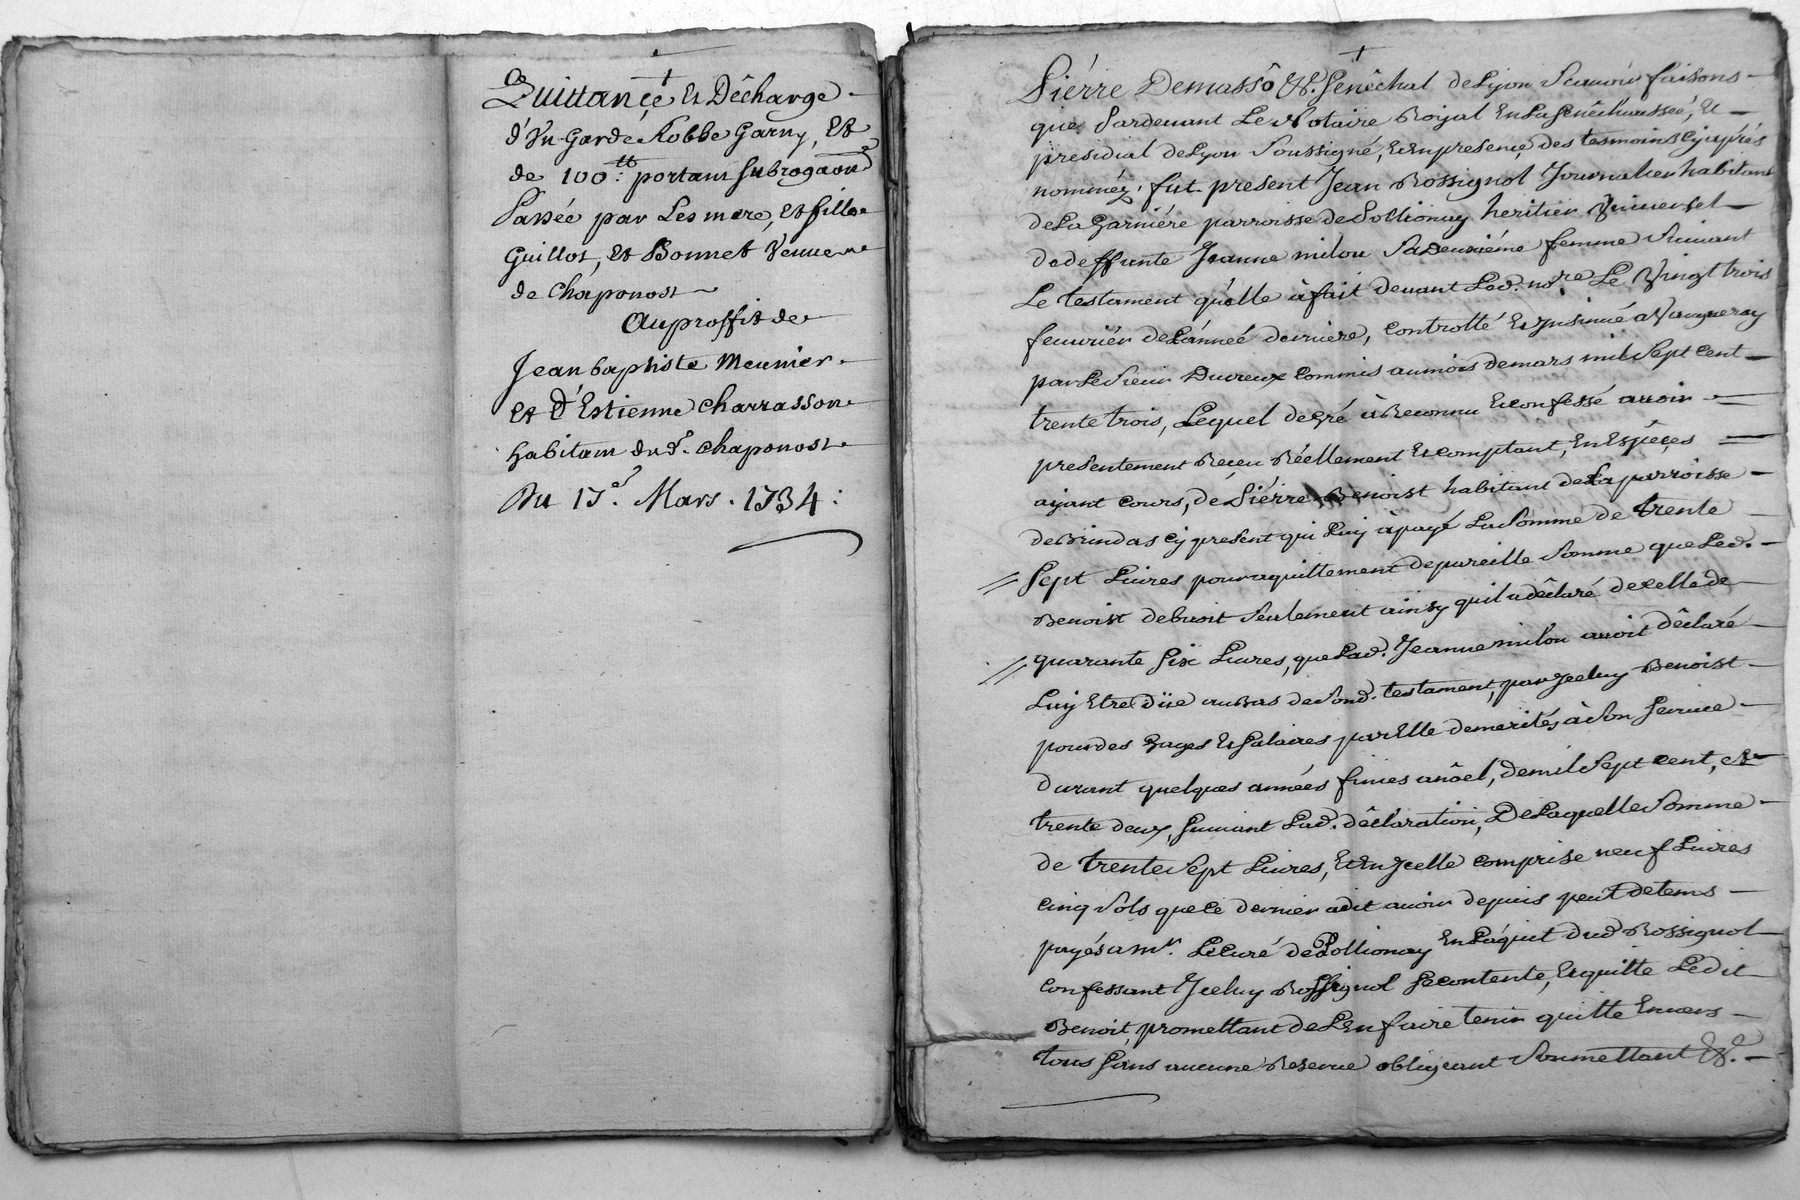 Quittance et Déchargé
d'Vn Garde Robbe Garny, Et
de 100 tt. portant subrogaõn
Passée par Les mere, et fille
Guillot, Et Bonnet Veuve
de Chaponost
Au proffit de
Jean baptiste Meunier
Et d'Estienne Charrasson
habitans dud. Chaponost
Du 17e. Mars. 1734:
Pierre Demasso &c. Senêchal de Lyon Scavoir faisons
que Pardevant Le Notaire Royal En La Senêchaussée, Et
presidial de Lyon Soussigné, et En presence des tesmoins Cy aprés
nommêz, fut present Jean Rossignol Journalier habitant
de La Garniére parroisse de Pollionay heritier Vniversel
de deffunte Jeanne milon Sa Deuxiéme femme Suivant
Le testament qu'elle à fait devant Led. nore. Le Vingt trois
feuvriér de L'année derniére, Controllé Et Insinué a Vaugneray
par Le Sieur Ducreux Commis au mois de mars mil Sept Cent
trente trois, Lequel de gré à Reconnu Et Confessé avoir
presentement Reçeu Réellement Et comptant, En Espéçes
ayant Cours, de Piérre Benoist habitant de La parroisse
de Brindas Cy present qui Luy à payé La Somme de trente
Sept Livres pour aquittement de pareille Somme que Led.
Benoist debvoit Seulement ainsy qu'il a dêclaré de celle de
quarante Six Livres, que Lad. Jeanne milon avoit dêclaré
Luy Etre düe au Bas de Sond. testament, par Jceluy Benoist
pour des Gages Et Salaires par Elle demerités à Son Service
durant quelques années finies a nôel, de mil Sept Cent, Et
trente deux, Suivant Lad. dêclaration, De Laquelle Somme
de trente Sept Livres, Et En Jcelle comprise neuf Livres
Cinq Sols que Ce dernier a dit avoir depuis peut de tems
payés a Mr. Le Curé de Pollionay En L'áquit dud Rossignol
Confessant Jceluy Rossignol Se contente, Et quitte Ledit
Benoit, promettant de L'En faire tenir quitte Envers
tous Sans aucune Reserve obligeant Soumettant &c.